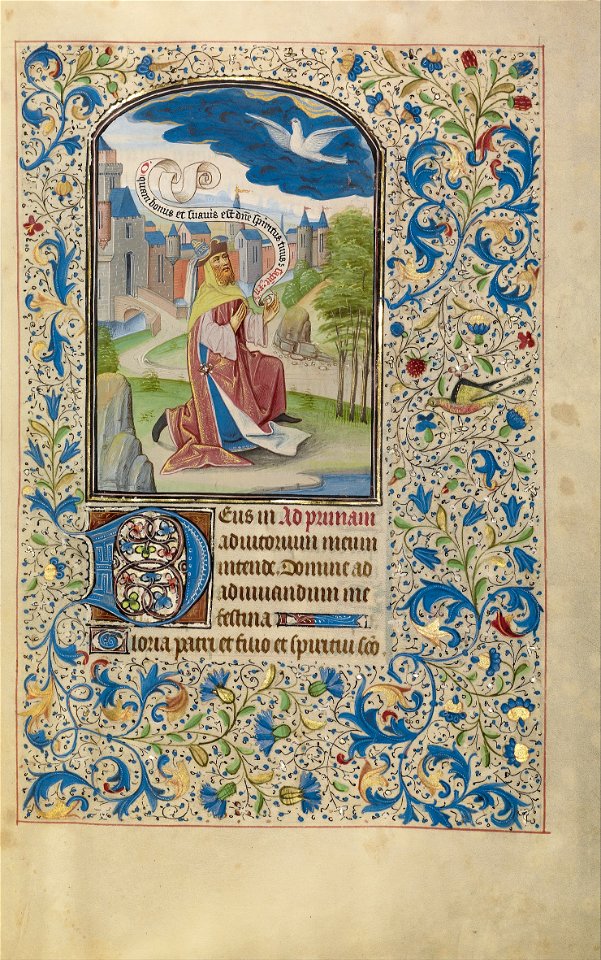 O quam bonus et suavis est dne spiritus tuus
Eus in Ad primam
adiutorium meum
intende. Domine ad
adiuuandum me
festina
Gloria patri et filio et spiritui sco